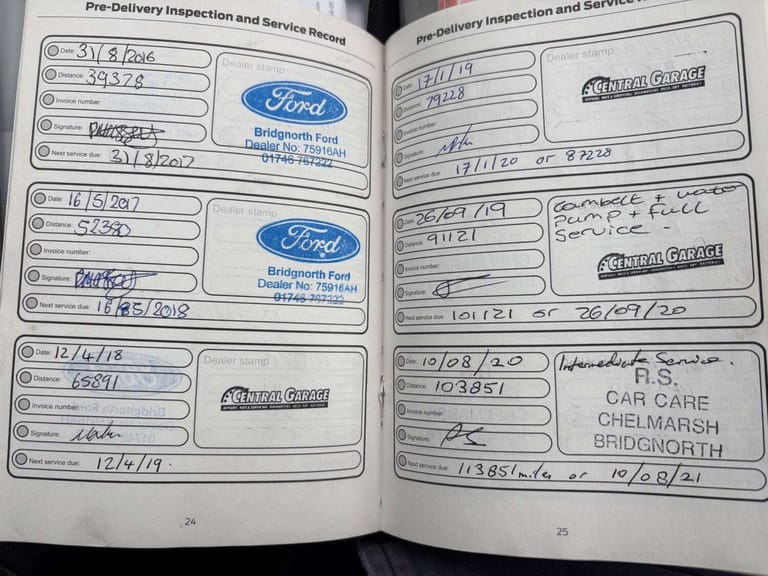 Pre-Delivery Inspection and Service Record
Date: 31/8/2016
Distance: 39378
Invoice number:
Signature:
Next service due: 31/8/2017
Dealer stamp
Ford
Bridgnorth Ford
Dealer No: 75916AH
01746 767222
Date: 16/5/2017
Distance: 52380
Invoice number:
Signature:
Next service due: 16/05/2018
Dealer stamp
Ford
Bridgnorth Ford
Dealer No: 75916AH
01746 767222
Date: 12/4/18
Distance: 65891
Invoice number:
Signature:
Next service due: 12/4/19.
Dealer stamp
CENTRAL GARAGE
24
Pre-Delivery Inspection and Service
Date: 17/1/19
Distance: 79228
Invoice number:
Signature:
Next service due: 17/1/20 or 87228
Dealer stamp
CENTRAL GARAGE
Date: 26/09/19
Distance: 91121
Invoice number:
Signature:
Next service due: 101121 or 26/09/20
Cambelt + water
pump + full
Service -
CENTRAL GARAGE
Date: 10/08/20
Distance: 103851
Invoice number:
Signature:
Next service due: 113851 miles or 10/08/21
Intermediate Service.
R.S.
CAR CARE
CHELMARSH
BRIDGNORTH
25